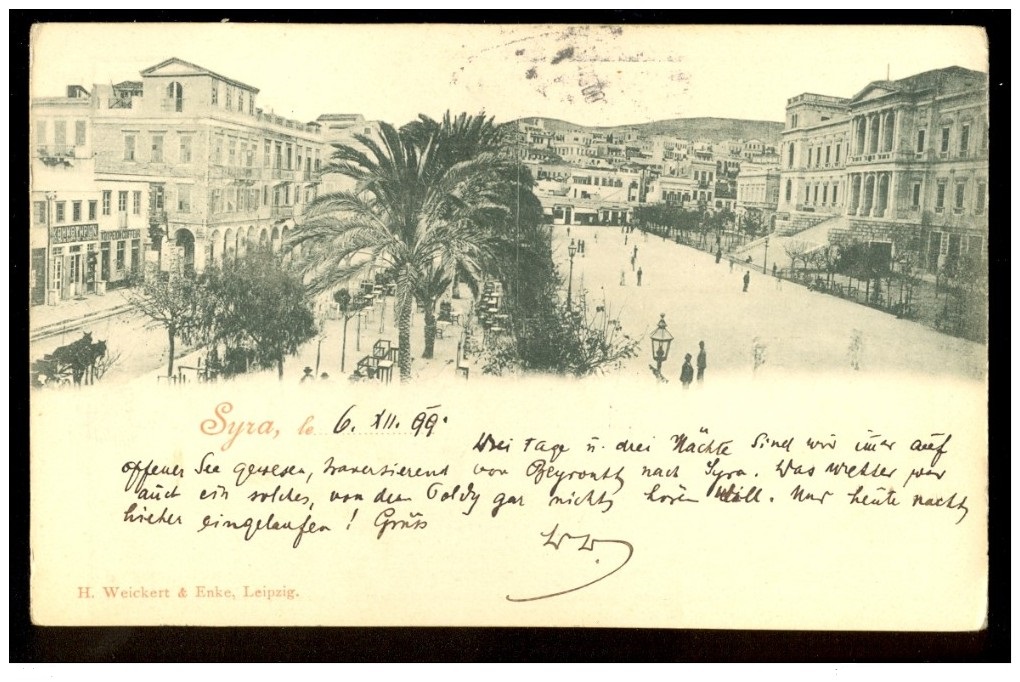 Syra, le 6. XII. 99.
Drei Tage u. drei Nächte sind wir imer auf
offener See gewesen, traversierend von Beyrouth nach Syra. Das Wetter war
auch ein solches, von dem Poldy gar nichts hören will. Nur heute nacht
hieher eingelaufen! Grüss
H. Weickert & Enke, Leipzig.